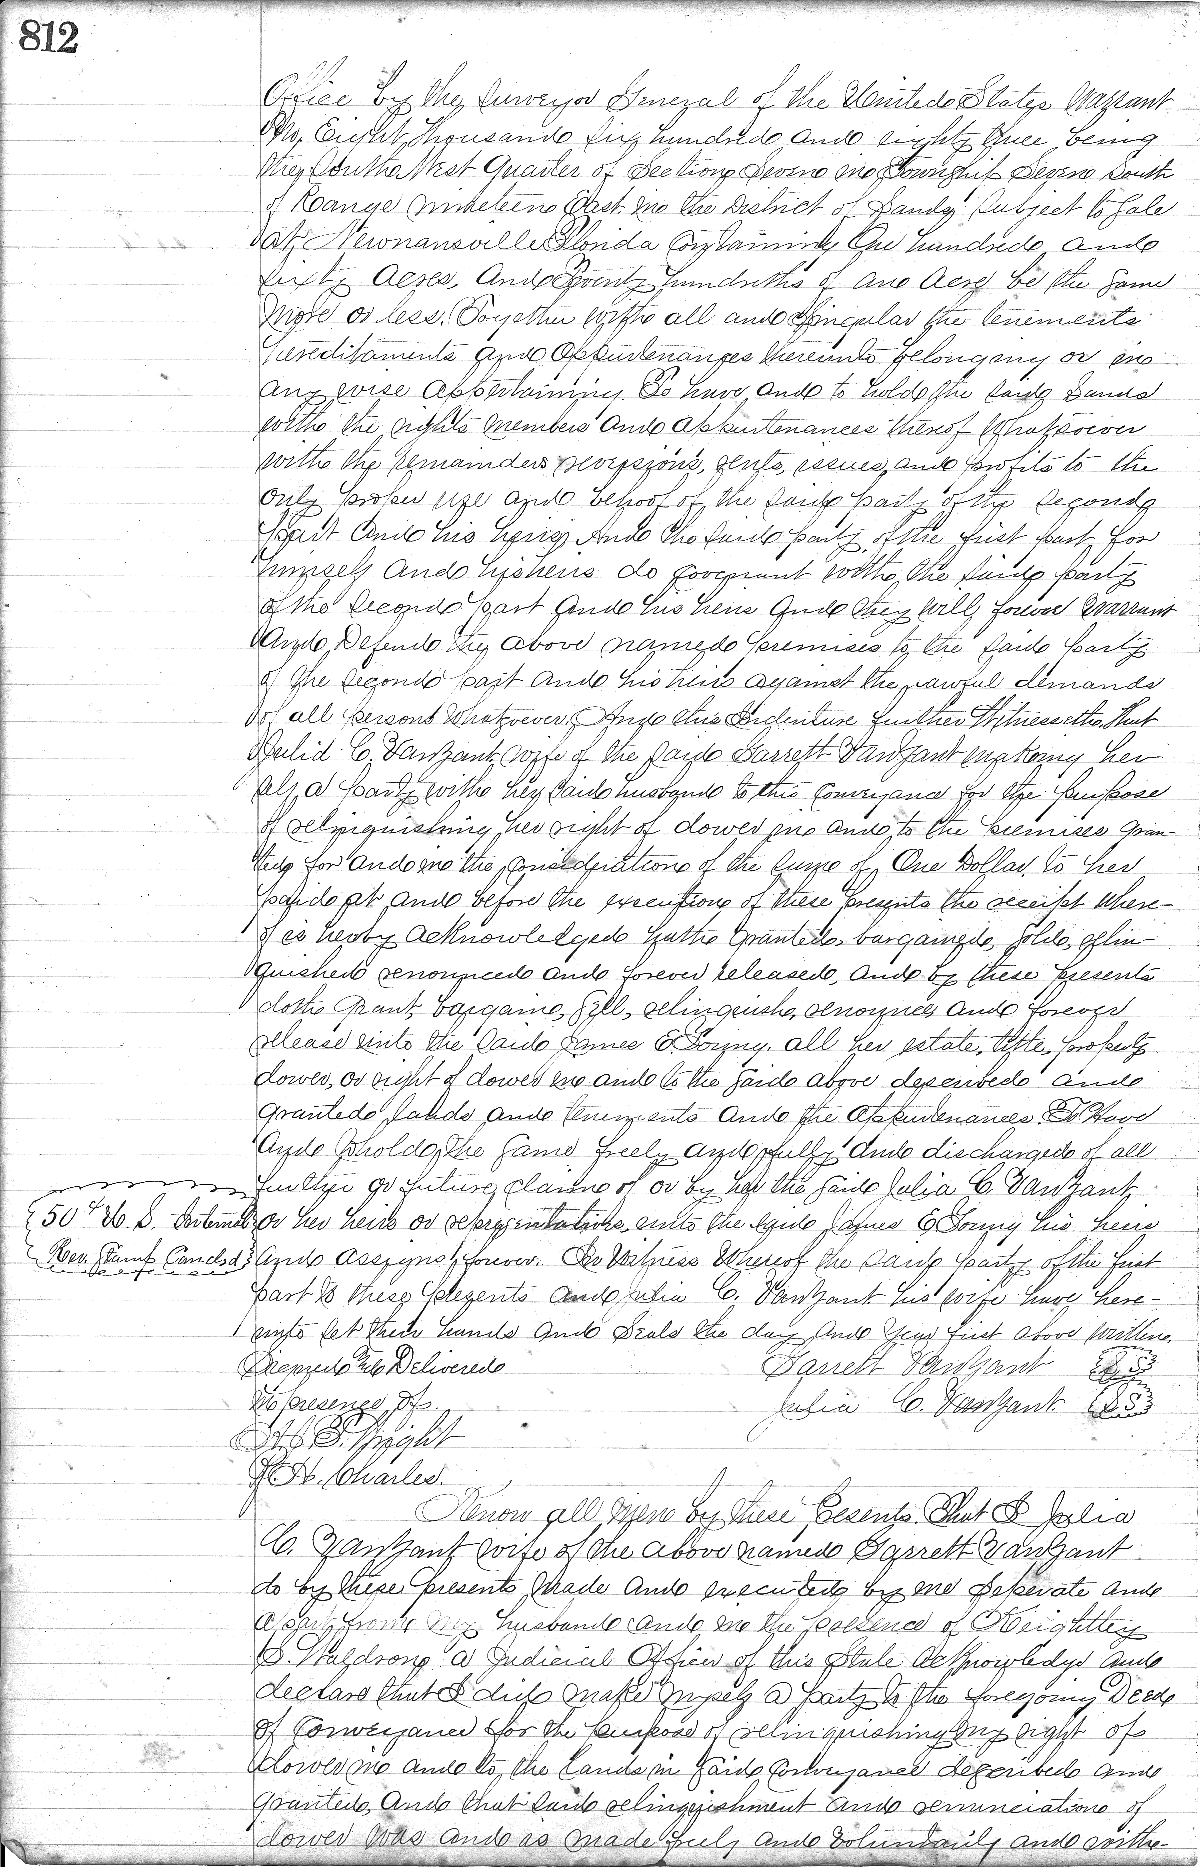 812
Office by the Surveyor General of the United States Warrant
No, Eight thousand six hundred and eighty three being
the South West Quarter of Section Seven in Township Seven South
of Range nineteen East in the District of Lands Subject to Sale
at Newnansville Florida Containing One hundred and
sixty Acres, And Seventy hundreths of an Acre be the same
more or less. Together with all and Singular the tenements
hereditaments and Appurtenances thereunto belonging or in
any wise appertaining To have and to hold the said Lands
with the rights members and appurtenances thereof Whatsoever
with the remainders reversions, rents, issues, and profits to the
only proper use and behoof of the said party of the second
part And his heirs And the said party of the first part for
himself and his heirs do covenant with the said party
of the second part and his heirs and they will forever Warrant
And Defend the above named premises to the said party
of the second part and his heirs against the lawful demands
of all persons Whatsoever. And this Indenture further Witnesseth That
Julia C. VanZant wife of the said Garrett VanZant making her
self a party with her said husband to this conveyance for the purpose
of relinquishing her right of dower in and to the premises gran-
ted for and in the consideration of the sum of One Dollar, to her
paid at and before the execution of these presents the receipt where-
of is herby acknowledged hath granted, bargained, sold, relin-
quished renounced and forever released, and by these presents
doth Grant bargain, sell, relinquish, renounce and forever
release unto the said James E Young. all her estate, title, property
dower, or right of dower in and to the said above described and
granted lands and tenements and the appurtenances. To Have
And to hold the same freely and fully and discharged of all
further or future claim of or by her the said Julia C. VanZant
50c U. S. Internal
Rev. Stamp Canclsd
or her heirs or representatives, unto the said James E Young his heirs
and assigns forever. In Witness Whereof the said party of the first
part to these presents and Julia C. VanZant his wife have here-
unto set their hands and Seals the day and Year first above written.
Signed And Delivered Garrett VanZant LS
In presence of. Julia C. VanZant LS
S. Wright
H. Charles.
Know all Men by these Presents That I Julia
C. VanZant wife of the above named Garrett VanZant
do by these presents made and executed by me seperate and
apart from my husband and in the presence of Keightley
S. Waldron a Judicial Officer of this State acknowledge and
declare that I did make myself a party to the foregoing Deed
of Conveyance for the purpose of relinquishing my right of
dower in and to the lands in said conveyance described and
granted, And that said relinquishment and renunciation of
dower was and is made freely and voluntarily and with-